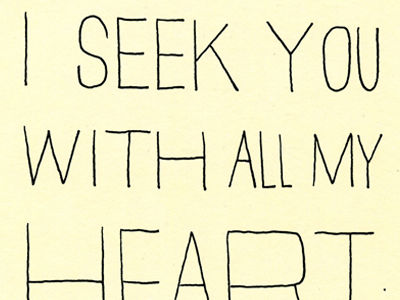 I SEEK YOU
WITH ALL MY
HEART.